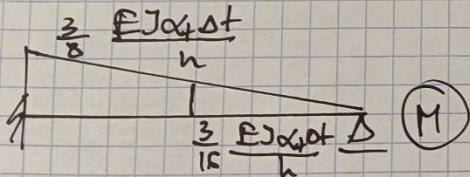 3/8 EJα₊Δt/h
3/16 EJα₊Δt/h
M